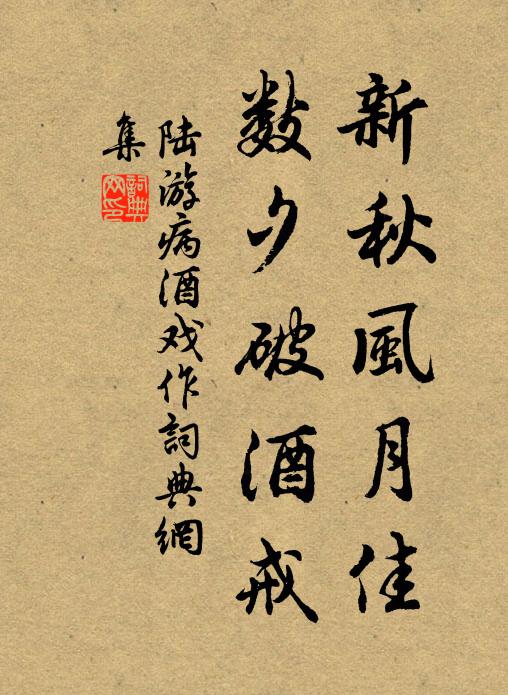 新秋風月佳
数夕破酒戒
陆游病酒戏作詞典網
集
詞典網印